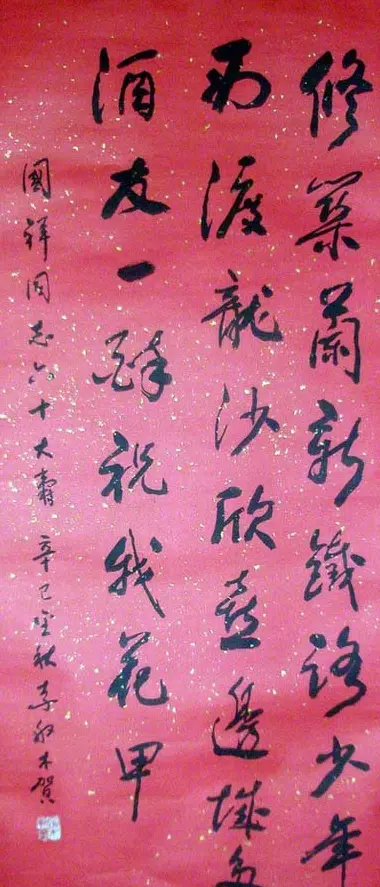 修築蘭新鐵路少年
西渡龍沙欣喜邊城多
酒友一醉祝我花甲
國祥同志六十大壽 辛巳金秋李般木賀